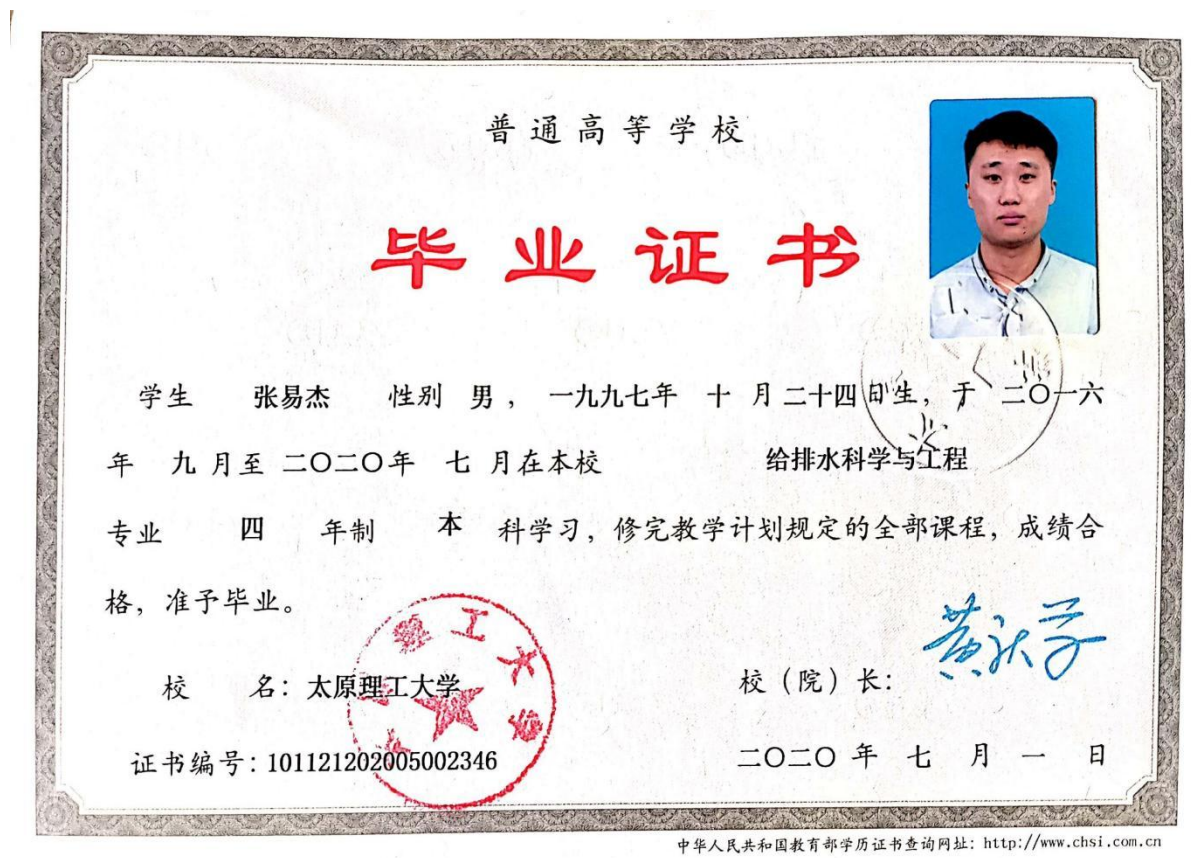 普通高等学校
毕业证书
学生 张易杰 性别 男 ， 一九九七年 十 月 二十四 日生，于 二〇一六
年 九 月至 二〇二〇年 七 月在本校 给排水科学与工程
专业 四 年制 本 科学习，修完教学计划规定的全部课程，成绩合
格，准予毕业。
校 名：太原理工大学
校（院）长：
证书编号：101121202005002346
二〇二〇 年 七 月 一 日
中华人民共和国教育部学历证书查询网址：http://www.chsi.com.cn